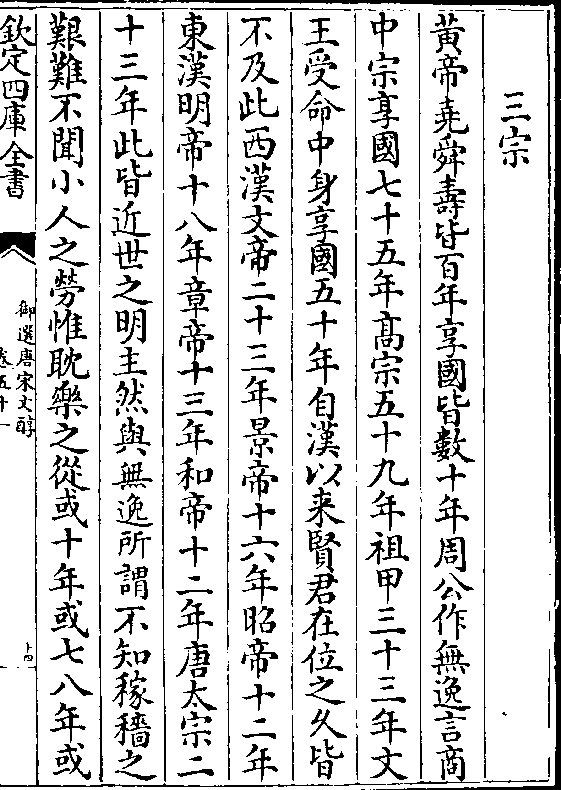 三宗
黄帝堯舜壽皆百年享國皆數十年周公作無逸言商
中宗享國七十五年髙宗五十九年祖甲三十三年文
王受命中身享國五十年自漢以来賢君在位之久皆
不及此西漢文帝二十三年景帝十六年昭帝十二年
東漢明帝十八年章帝十三年和帝十二年唐太宗二
十三年此皆近世之明主然與無逸所謂不知稼穡之
艱難不聞小人之勞惟耽樂之從或十年或七八年或
欽定四庫全書
御選唐宋文醇
卷五十一
十四